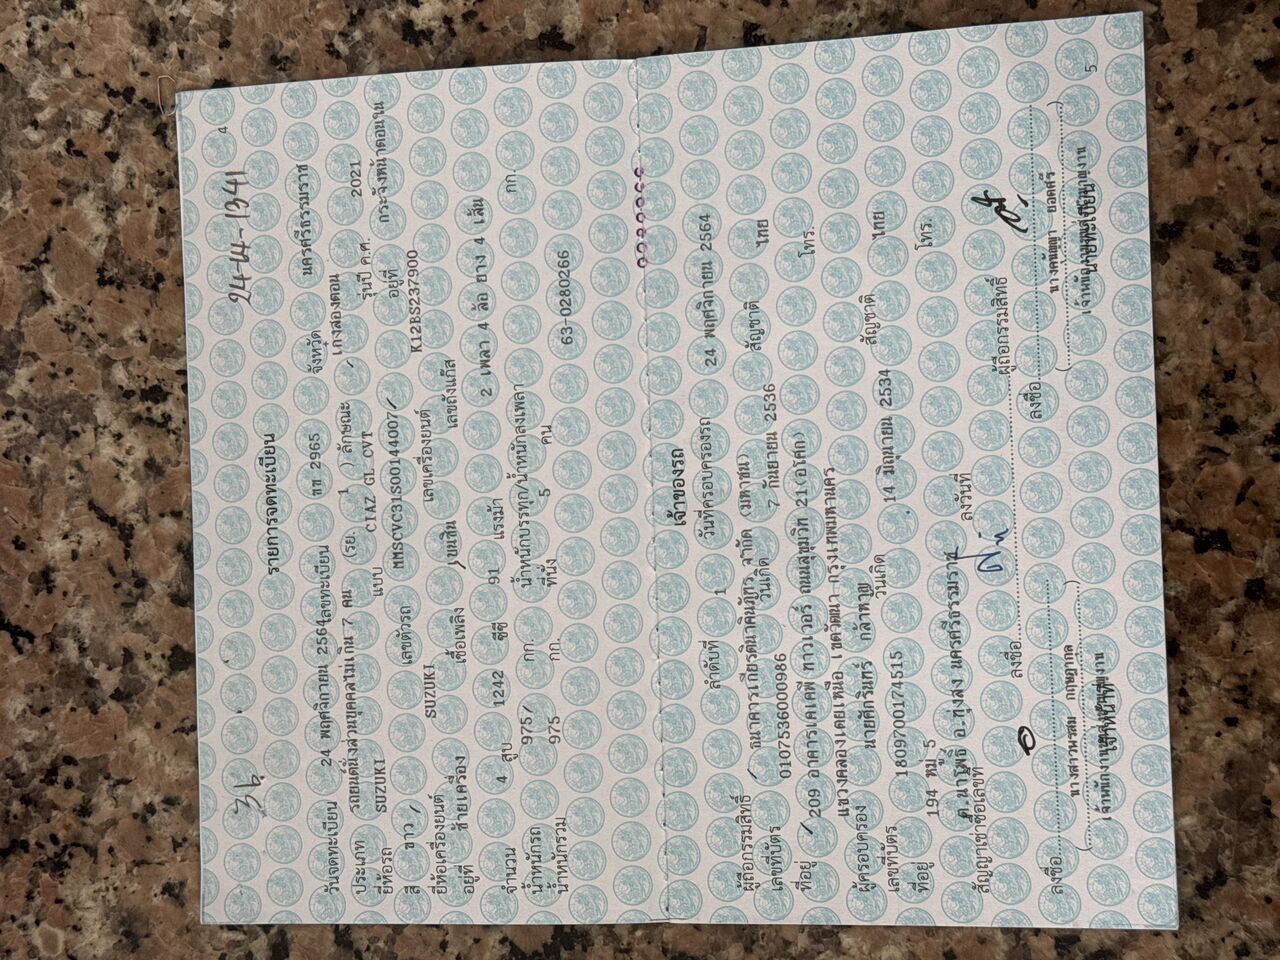 36 24-44-1341 4
รายการจดทะเบียน
วันจดทะเบียน 24 พฤศจิกายน 2564 เลขทะเบียน กก 2965 จังหวัด นครศรีธรรมราช
ประเภท รถยนต์นั่งส่วนบุคคลไม่เกิน 7 คน (รย. 1 ) ลักษณะ / เก๋งสองตอน
ยี่ห้อรถ SUZUKI แบบ CIAZ GL CVT รุ่นปี ค.ศ. 2021
สี ขาว/ เลขตัวรถ MMSCVC31S00144007/ อยู่ที่ กระจังหน้าตอนใน
ยี่ห้อเครื่องยนต์ SUZUKI เลขเครื่องยนต์ K12BS237900
อยู่ที่ ซ้ายเครื่อง เชื้อเพลิง /เบนซิน เลขถังแก๊ส
จำนวน 4 สูบ 1242 ซีซี 91 แรงม้า 2 เพลา 4 ล้อ ยาง 4 เส้น
น้ำหนักรถ 975/ กก. น้ำหนักบรรทุก/น้ำหนักลงเพลา กก.
น้ำหนักรวม 975 กก. ที่นั่ง 5 คน 63-0280266
เจ้าของรถ
ลำดับที่ 1 วันที่ครอบครองรถ 24 พฤศจิกายน 2564
ผู้ถือกรรมสิทธิ์ / ธนาคารเกียรตินาคินภัทร จำกัด (มหาชน)
เลขที่บัตร 0107536000986 วันเกิด 7 กันยายน 2536 สัญชาติ ไทย
ที่อยู่ /209 อาคารเคเคพี ทาวเวอร์ ถนนสุขุมวิท 21(อโศก) โทร.
แขวงคลองเตยเหนือ เขตวัฒนา กรุงเทพมหานคร
ผู้ครอบครอง นายศักรินทร์ กล้าหาญ
เลขที่บัตร 1809700174515 วันเกิด 14 มิถุนายน 2534 สัญชาติ ไทย
ที่อยู่ 194 หมู่ 5 โทร.
ต.นาโพธิ์ อ.ทุ่งสง นครศรีธรรมราช
สัญญาเช่าซื้อเลขที่ ลงวันที่
ลงชื่อ ผู้ถือกรรมสิทธิ์
ลงชื่อ ลงชื่อ
5